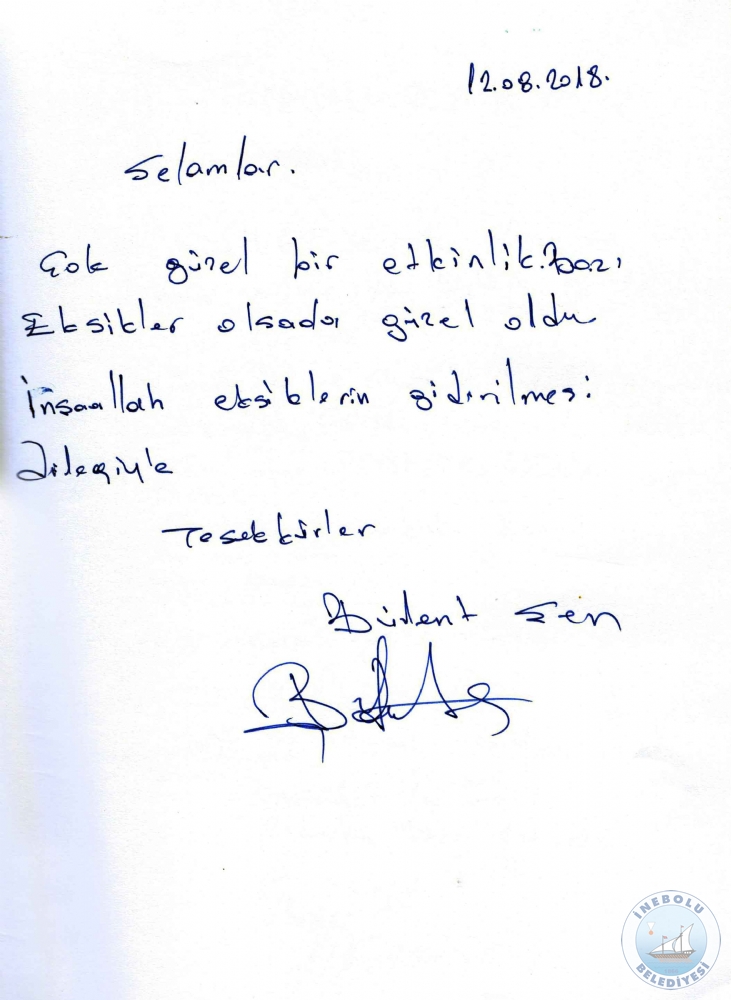 12.08.2018.
Selamlar.
Çok güzel bir etkinlik. Bazı
Eksikler olsada güzel oldu
İnsaallah eksiklerin giderilmesi
Dilegiyle
Tesekkürler
Bülent Şen
İNEBOLU
BELEDİYESİ